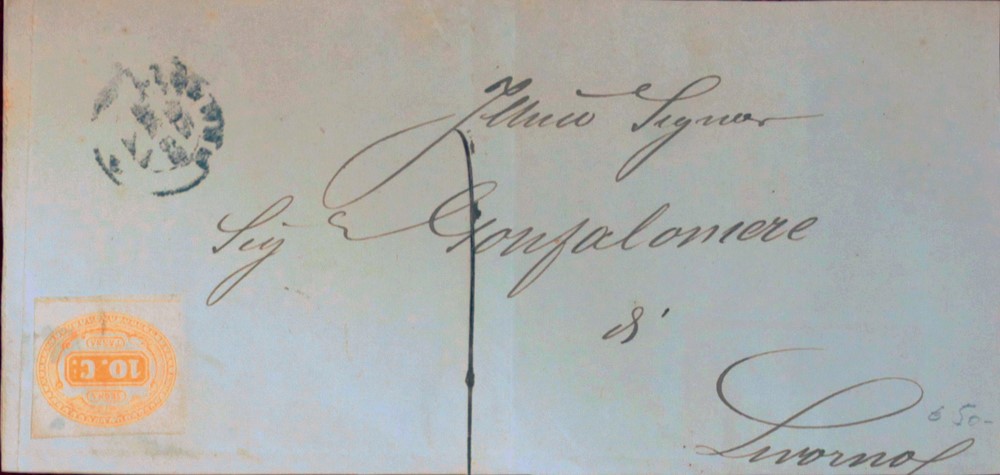 Illmo Signor
Sig Gonfaloniere
di
Livorno
10. C.
650-